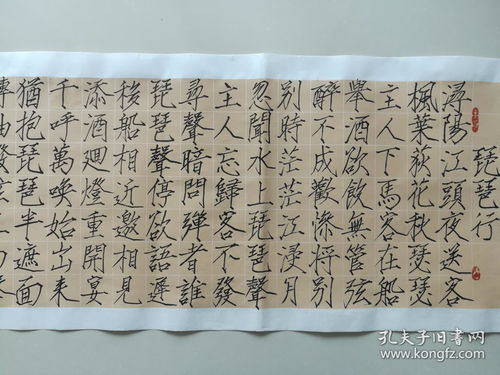 琵琶行
潯陽江頭夜送客
楓葉荻花秋瑟瑟
主人下馬客在船
舉酒欲飲無管弦
醉不成歡慘將別
別時茫茫江浸月
忽聞水上琵琶聲
主人忘歸客不發
尋聲暗問彈者誰
琵琶聲停欲語遲
移船相近邀相見
添酒廻燈重開宴
千呼萬喚始出来
猶抱琵琶半遮面
孔夫子旧书网
www.kongfz.com